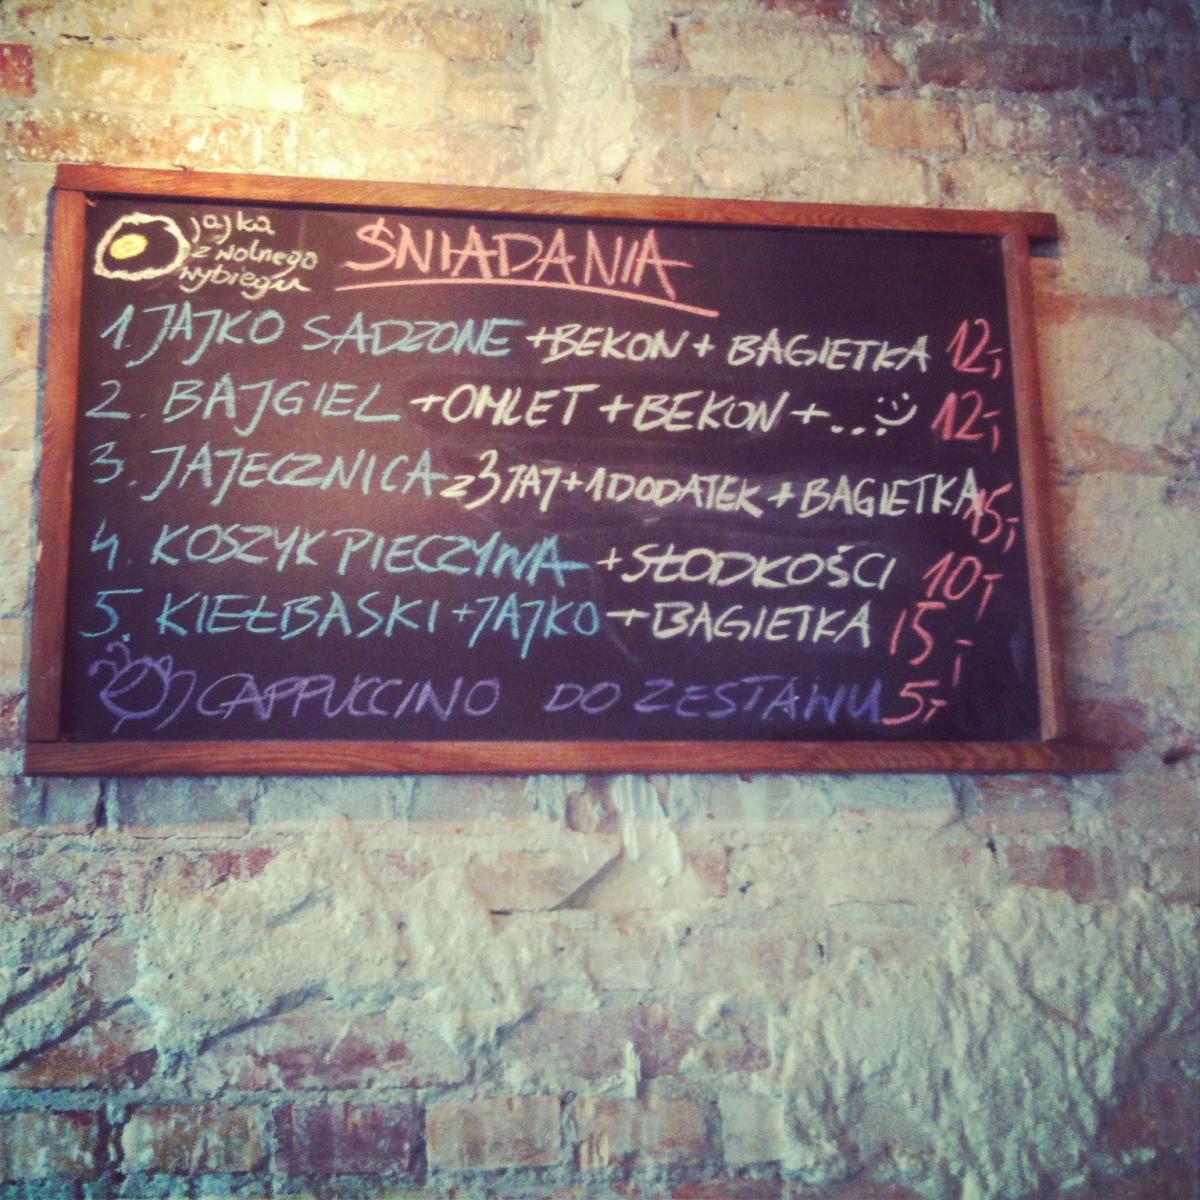 jajka
z wolnego
wybiegu
ŚNIADANIA
1. JAJKO SADZONE +BEKON + BAGIETKA 12,-
2. BAJGIEL +OMLET +BEKON +...;) 12,-
3. JAJECZNICA z 3 JAJ +1 DODATEK + BAGIETKA 15,-
4. KOSZYK PIECZYWA +SŁODKOŚCI 10,-
5. KIEŁBASKI +JAJKO +BAGIETKA 15,-
CAPPUCCINO DO ZESTAWU 5,-